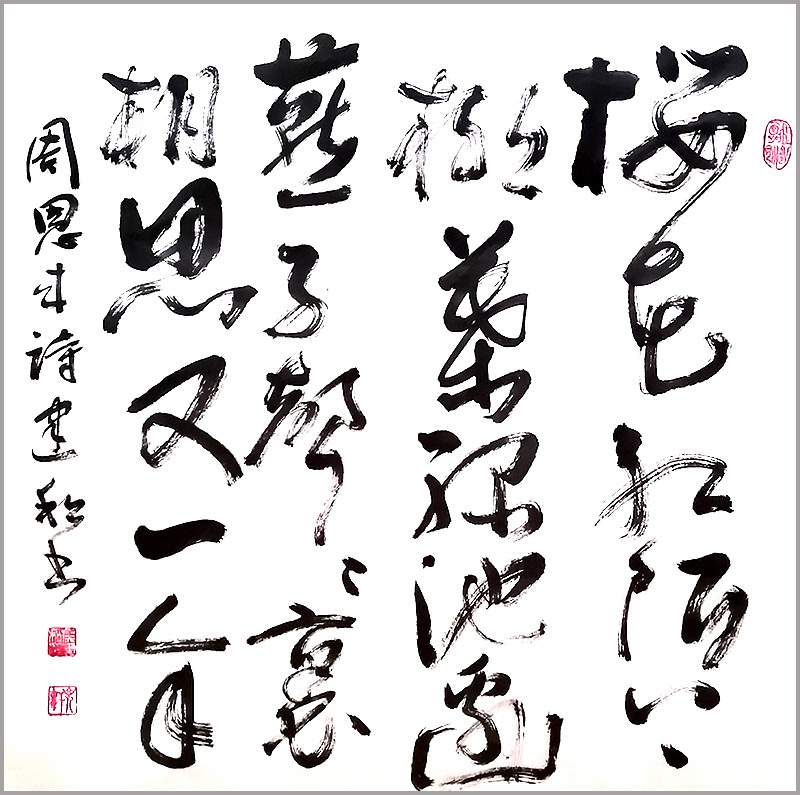 樱花红陌上
柳叶绿池边
燕子声声里
相思又一年
周恩来诗建和书